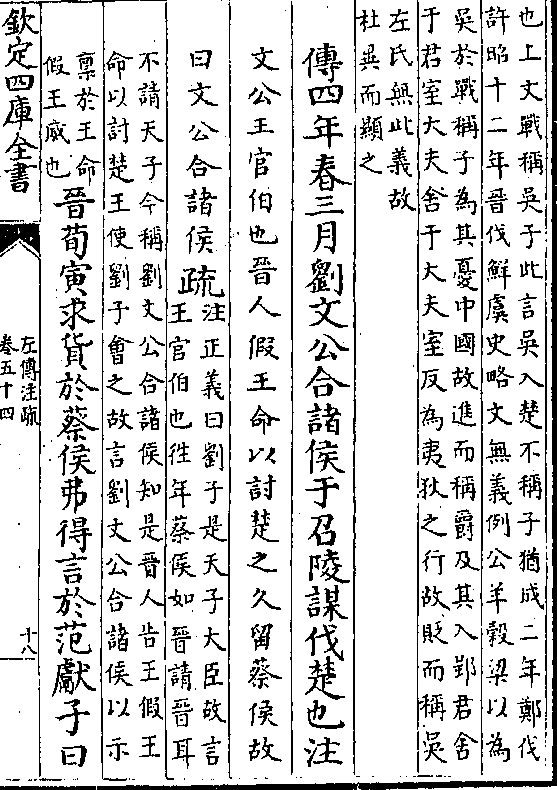 也上文戰稱吳子此言吳入楚不稱子猶成二年鄭伐
許昭十二年晉伐鮮虞史略文無義例公羊穀梁以為
吳於戰稱子為其憂中國故進而稱爵及其入郢君舍
于君室大夫舍于大夫室反為夷狄之行故貶而稱吳
左氏無此義故
杜異而顯之
傳四年春三月劉文公合諸侯于召陵謀伐楚也注
文公王官伯也晉人假王命以討楚之久留蔡侯故
曰文公合諸侯疏
注正義曰劉子是天子大臣故言
王官伯也徃年蔡侯如晉請晉耳
不請天子今稱劉文公合諸侯知是晉人告王假王
命以討楚王使劉子會之故言劉文公合諸侯以示
稟於王命
假王威也
晉荀寅求貨於蔡侯弗得言於范獻子曰
欽定四庫全書
左傳注疏
卷五十四
十八